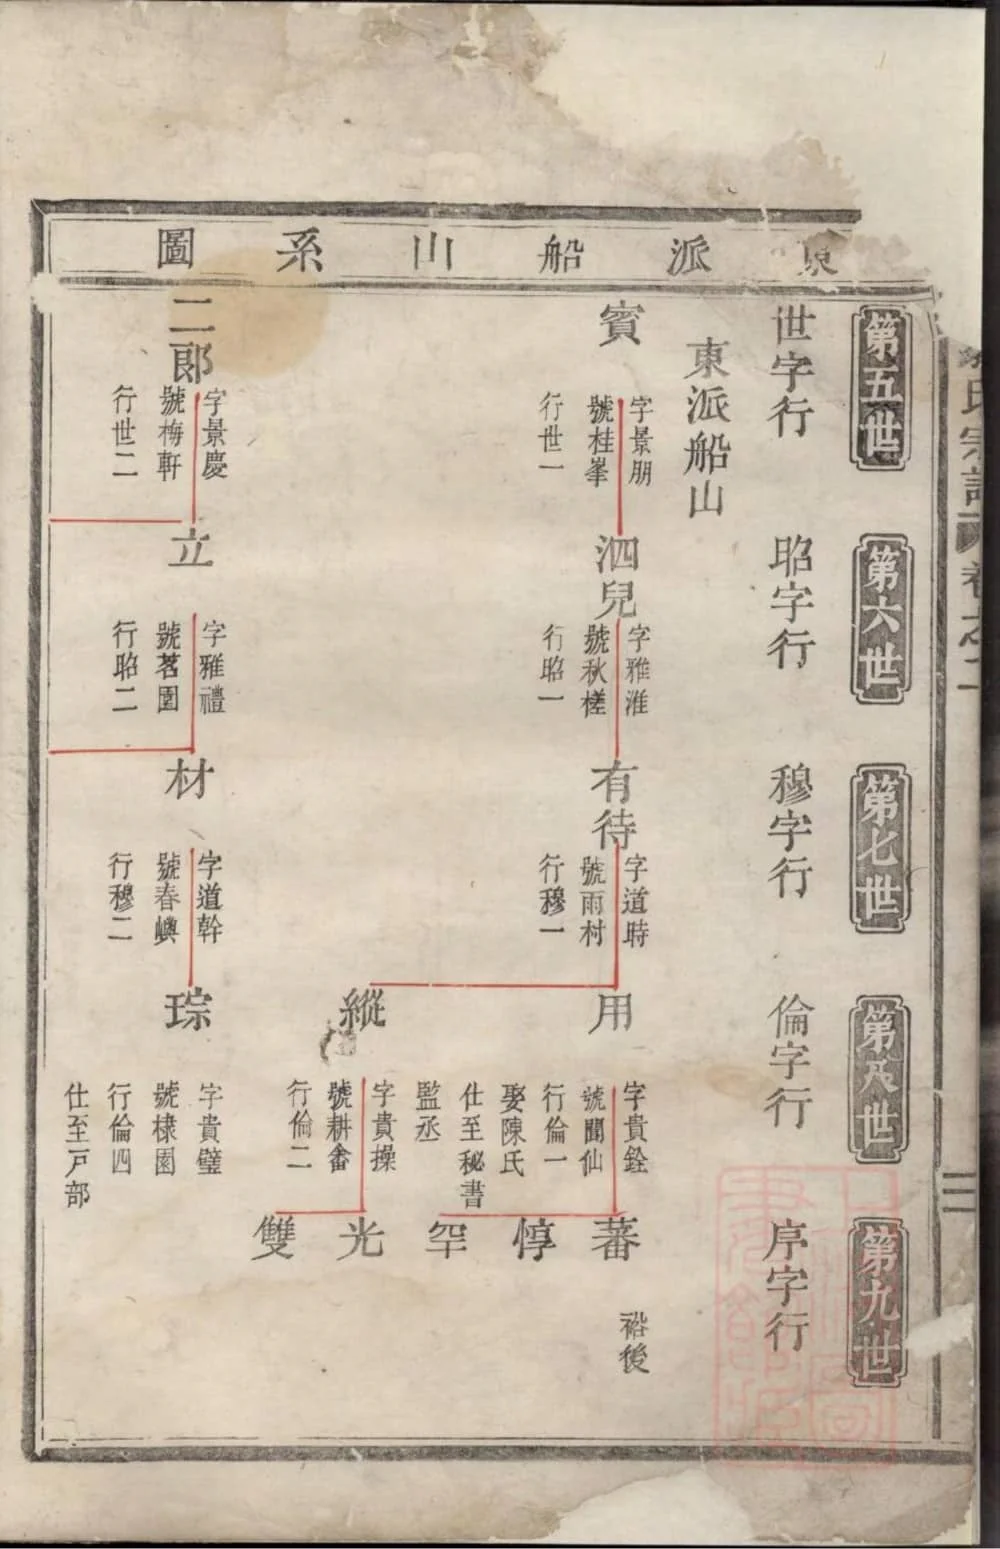 東派船山系圖
第五世
第六世
第七世
第八世
第九世
世字行
昭字行
穆字行
倫字行
序字行
東派船山
賓
字景朋
號桂峯
行世一
泗兒
字雅淮
號秋槎
行昭一
有待
字道時
號雨村
行穆一
用
字貴銓
號聞仙
行倫一
娶陳氏
仕至秘書
監丞
蕃
裕後
惇
罕
縱
字貴操
號耕畬
行倫二
光
雙
二郎
字景慶
號梅軒
行世二
立
字雅禮
號茗園
行昭二
材
字道幹
號春嶼
行穆二
琮
字貴璧
號棣園
行倫四
仕至戸部
氏宗譜
卷之二